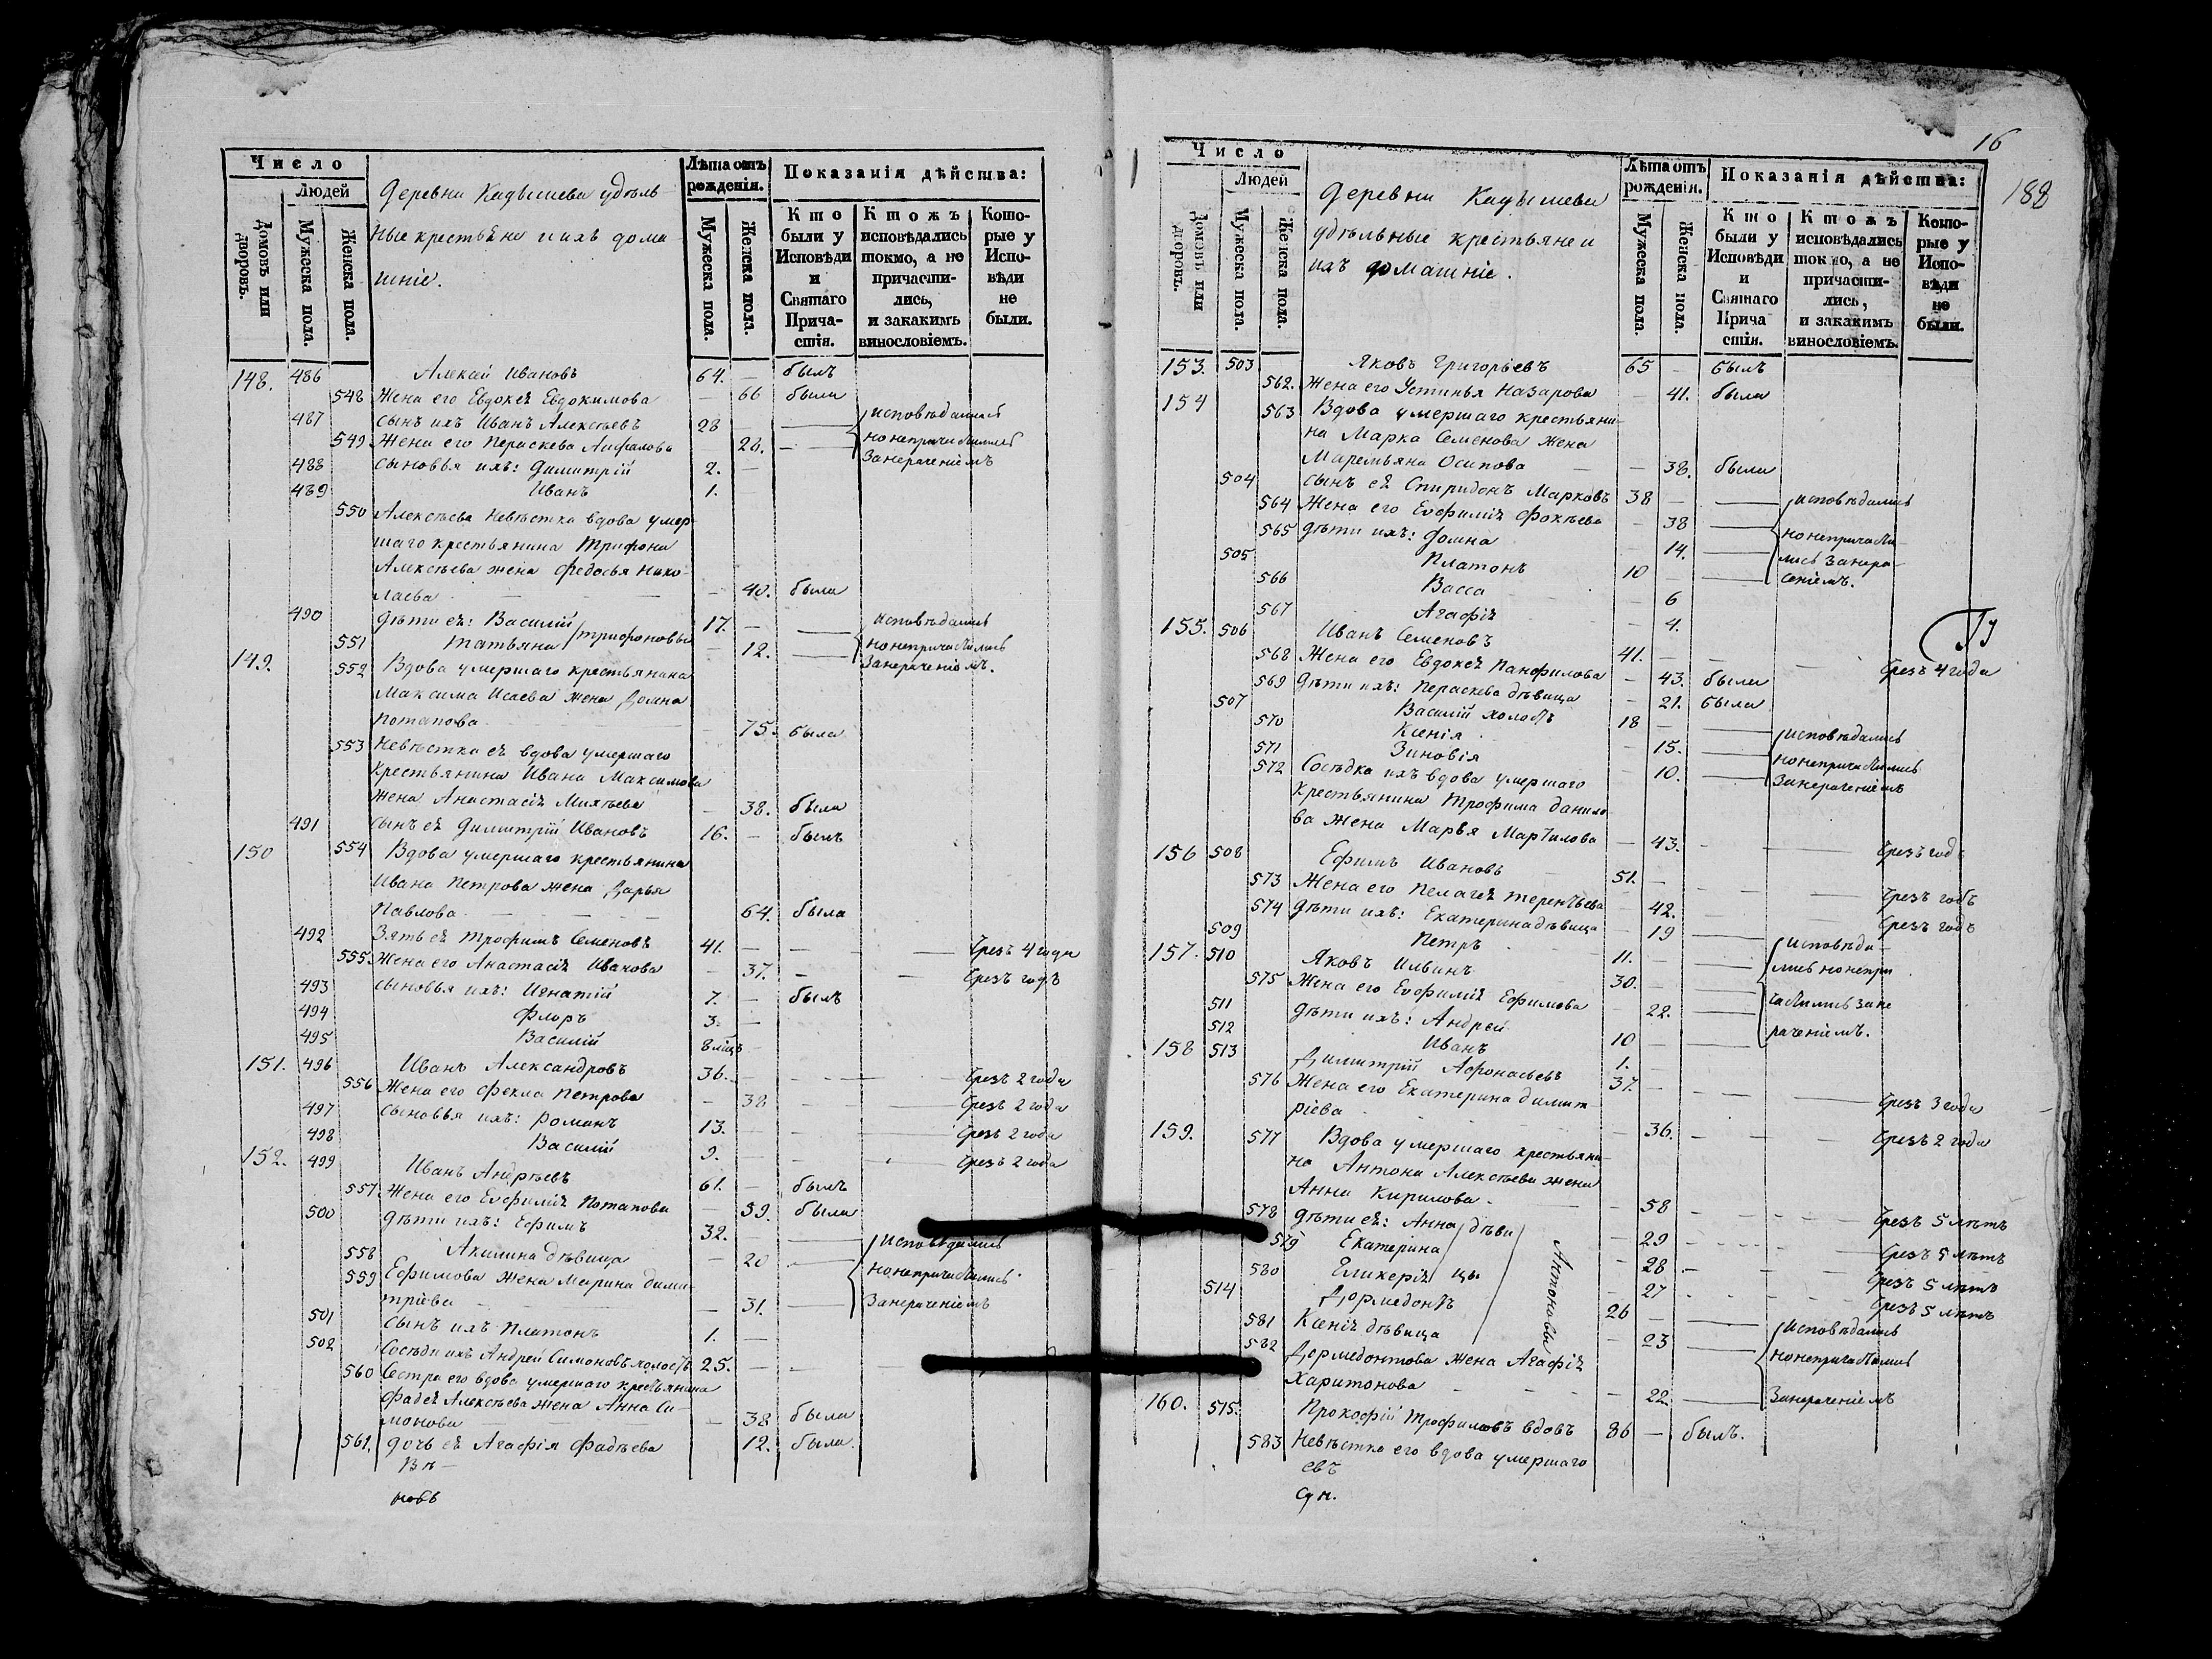 Число
Людей
Домовъ или дворовъ.
Мужеска пола.
Женска пола.
Деревни Кадышева удѣль-
ные крестьяне и ихъ дома
шніе.
Лѣта отъ рожденія.
Мужеска пола.
Женска пола.
Показанія дѣйства:
Кто были у Исповѣди и Святаго Прича-стія.
Ктожъ исповѣдались токмо, а не причасти-лись, и закакимъ винословіемъ.
Кото-рые у Испо-вѣди не были.
148. 486 Алексей Ивановъ 64. — былъ
548 Жена его Евдокеѧ Евдокимова — 66 была
487 сынъ ихъ Иванъ Алексѣевъ 28 — исповѣдались
549 Жена его Пераскева — 28. — но непричастились
488 сыновья ихъ: Димитрій 2. — Занераченіемъ
489 Иванъ 1. —
550 Алексѣева невѣстка вдова умер-
шаго крестьянина Трифона
Алексѣева жена Федосья Нико-
лаева — 40. была
490 дѣти еѧ: Василій 17. — исповѣдались
551 Татьяна Трифоновы — 12. — но непричастились
149. 552 Вдова умершаго крестьянина Занераченіемъ.
Максима Исаева жена Домна
Потапова — 75. была
553 Невѣстка еѧ вдова умершаго
крестьянина Ивана Максимова
жена Анастасіѧ Михѣева — 38. была
491 сынъ еѧ Димитрій Ивановъ 16. — былъ
150 554 Вдова умершаго крестьянина
Ивана Петрова жена Дарья
Павлова — 64. была
492 Зять еѧ Трофимъ Семеновъ 41. — — — Чрезъ 4 года
555 Жена его Анастасіѧ Иванова — 37. — — Чрезъ годъ
493 сыновья ихъ: Игнатій 7. — былъ
494 Флоръ 3. —
495 Василій 8 мцъ —
151. 496 Иванъ Александровъ 36. — — Чрезъ 2 года
556 Жена его Фекла Петрова — 38 — Чрезъ 2 года
497 сыновья ихъ: Романъ 13. — — Чрезъ 2 года
498 Василій 9. — — Чрезъ 2 года
152. 499 Иванъ Андрѣевъ 61. — былъ
557 Жена его Евфиміѧ Потапова — 59. была
500 дѣти ихъ: Ефимъ 32. — исповѣдались
558 Акилина дѣвица — 20 — но непричастились
559 Ефимова жена Марина Дими-
тріева — 31. — Занераченіемъ
501 сынъ ихъ Платонъ 1. —
502 Сосѣди ихъ Андрей Симоновъ холостъ 25. — —
560 Сестра его вдова умершаго крестьянина
Фадеѧ Алексѣева жена Анна Си-
монова — 38 была
561. дочь еѧ Агафія Фадѣева 12. была.
Вѣ-
новъ
16
188
Число
Людей
Домовъ или дворовъ.
Мужеска пола.
Женска пола.
Деревни Кадышева
удѣльные крестьяне и
ихъ домашніе.
Лѣта отъ рожденія.
Мужеска пола.
Женска пола.
Показанія дѣйства:
Кто были у Исповѣди и Святаго Прича стія.
Ктожъ исповѣдались токмо, а не причасти-лись, и закакимъ винословіемъ.
Кото-рые у Испо-вѣди не были.
153. 503 Яковъ Григорьевъ 65 — былъ
562. Жена его Устинья Назарова — 41. была
154 563 Вдова умершаго крестьяни-
на Марка Семенова жена
Маремьяна Осипова — 38. была
504 сынъ еѧ Спиридонъ Марковъ 38 — исповѣдались
564 Жена его Евфиміѧ Фокѣева — 38 —
565 дѣти ихъ: Домна — 14. — но непричасти-
505 Платонъ 10 — лись Занера-
566 Васса — 6 ченіемъ.
567 Агафіѧ — 4.
155. 506 Иванъ Семеновъ 41. — — Чрезъ 4 года
568 Жена его Евдокеѧ Панфилова — 43. была
569 дѣти ихъ: Пераскева дѣвица — 21. была
507 Василій холостъ 18 — исповѣдались
570 Ксенія — 15. — но непричастились
571 Зиновія — 10. — Занераченіемъ
572 Сосѣдка ихъ вдова умершаго
крестьянина Трофима Данило-
ва жена Марья Мартилова — 43. — — Чрезъ годъ
156 508 Ефимъ Ивановъ 51. — — Чрезъ годъ
573 Жена его Пелагеѧ Терентьева — 42. — Чрезъ годъ
574 дѣти ихъ: Екатерина дѣвица — 19 — исповѣда-
509 Петръ 11. — лись но непри
157. 510 Яковъ Ильинъ 30. —
575 Жена его Евфиміѧ Ефимова — 22. — частились зане
511 дѣти ихъ: Андрей 10 — раченіемъ.
512 Иванъ 1. —
158 513 Димитрій Афонасьевъ 37. — — Чрезъ 3 года
576 Жена его Екатерина Димит-
ріева — 36. — — Чрезъ 2 года
159. 577 Вдова умершаго крестьяни-
на Антона Алексѣева жена
Анна Кирилова — 58 — — Чрезъ 5 лѣтъ
578 дѣти еѧ: Анна дѣви — 29 — — Чрезъ 5 лѣтъ
579 Екатерина — 28 — Чрезъ 5 лѣтъ
580 Гликеріѧ цы — 27 — Чрезъ 5 лѣтъ
514 Дормедонтъ 26 — исповѣдались
581 Ксеніѧ дѣвица — 23 — но непричастились
Антоновы
582 Дормедонтова жена Агафіѧ
Харитонова — 22 — Занераченіемъ
160. 515. Прокофій Трофимовъ вдовъ 86 — былъ.
583 Невѣстка его вдова умершаго
евъ